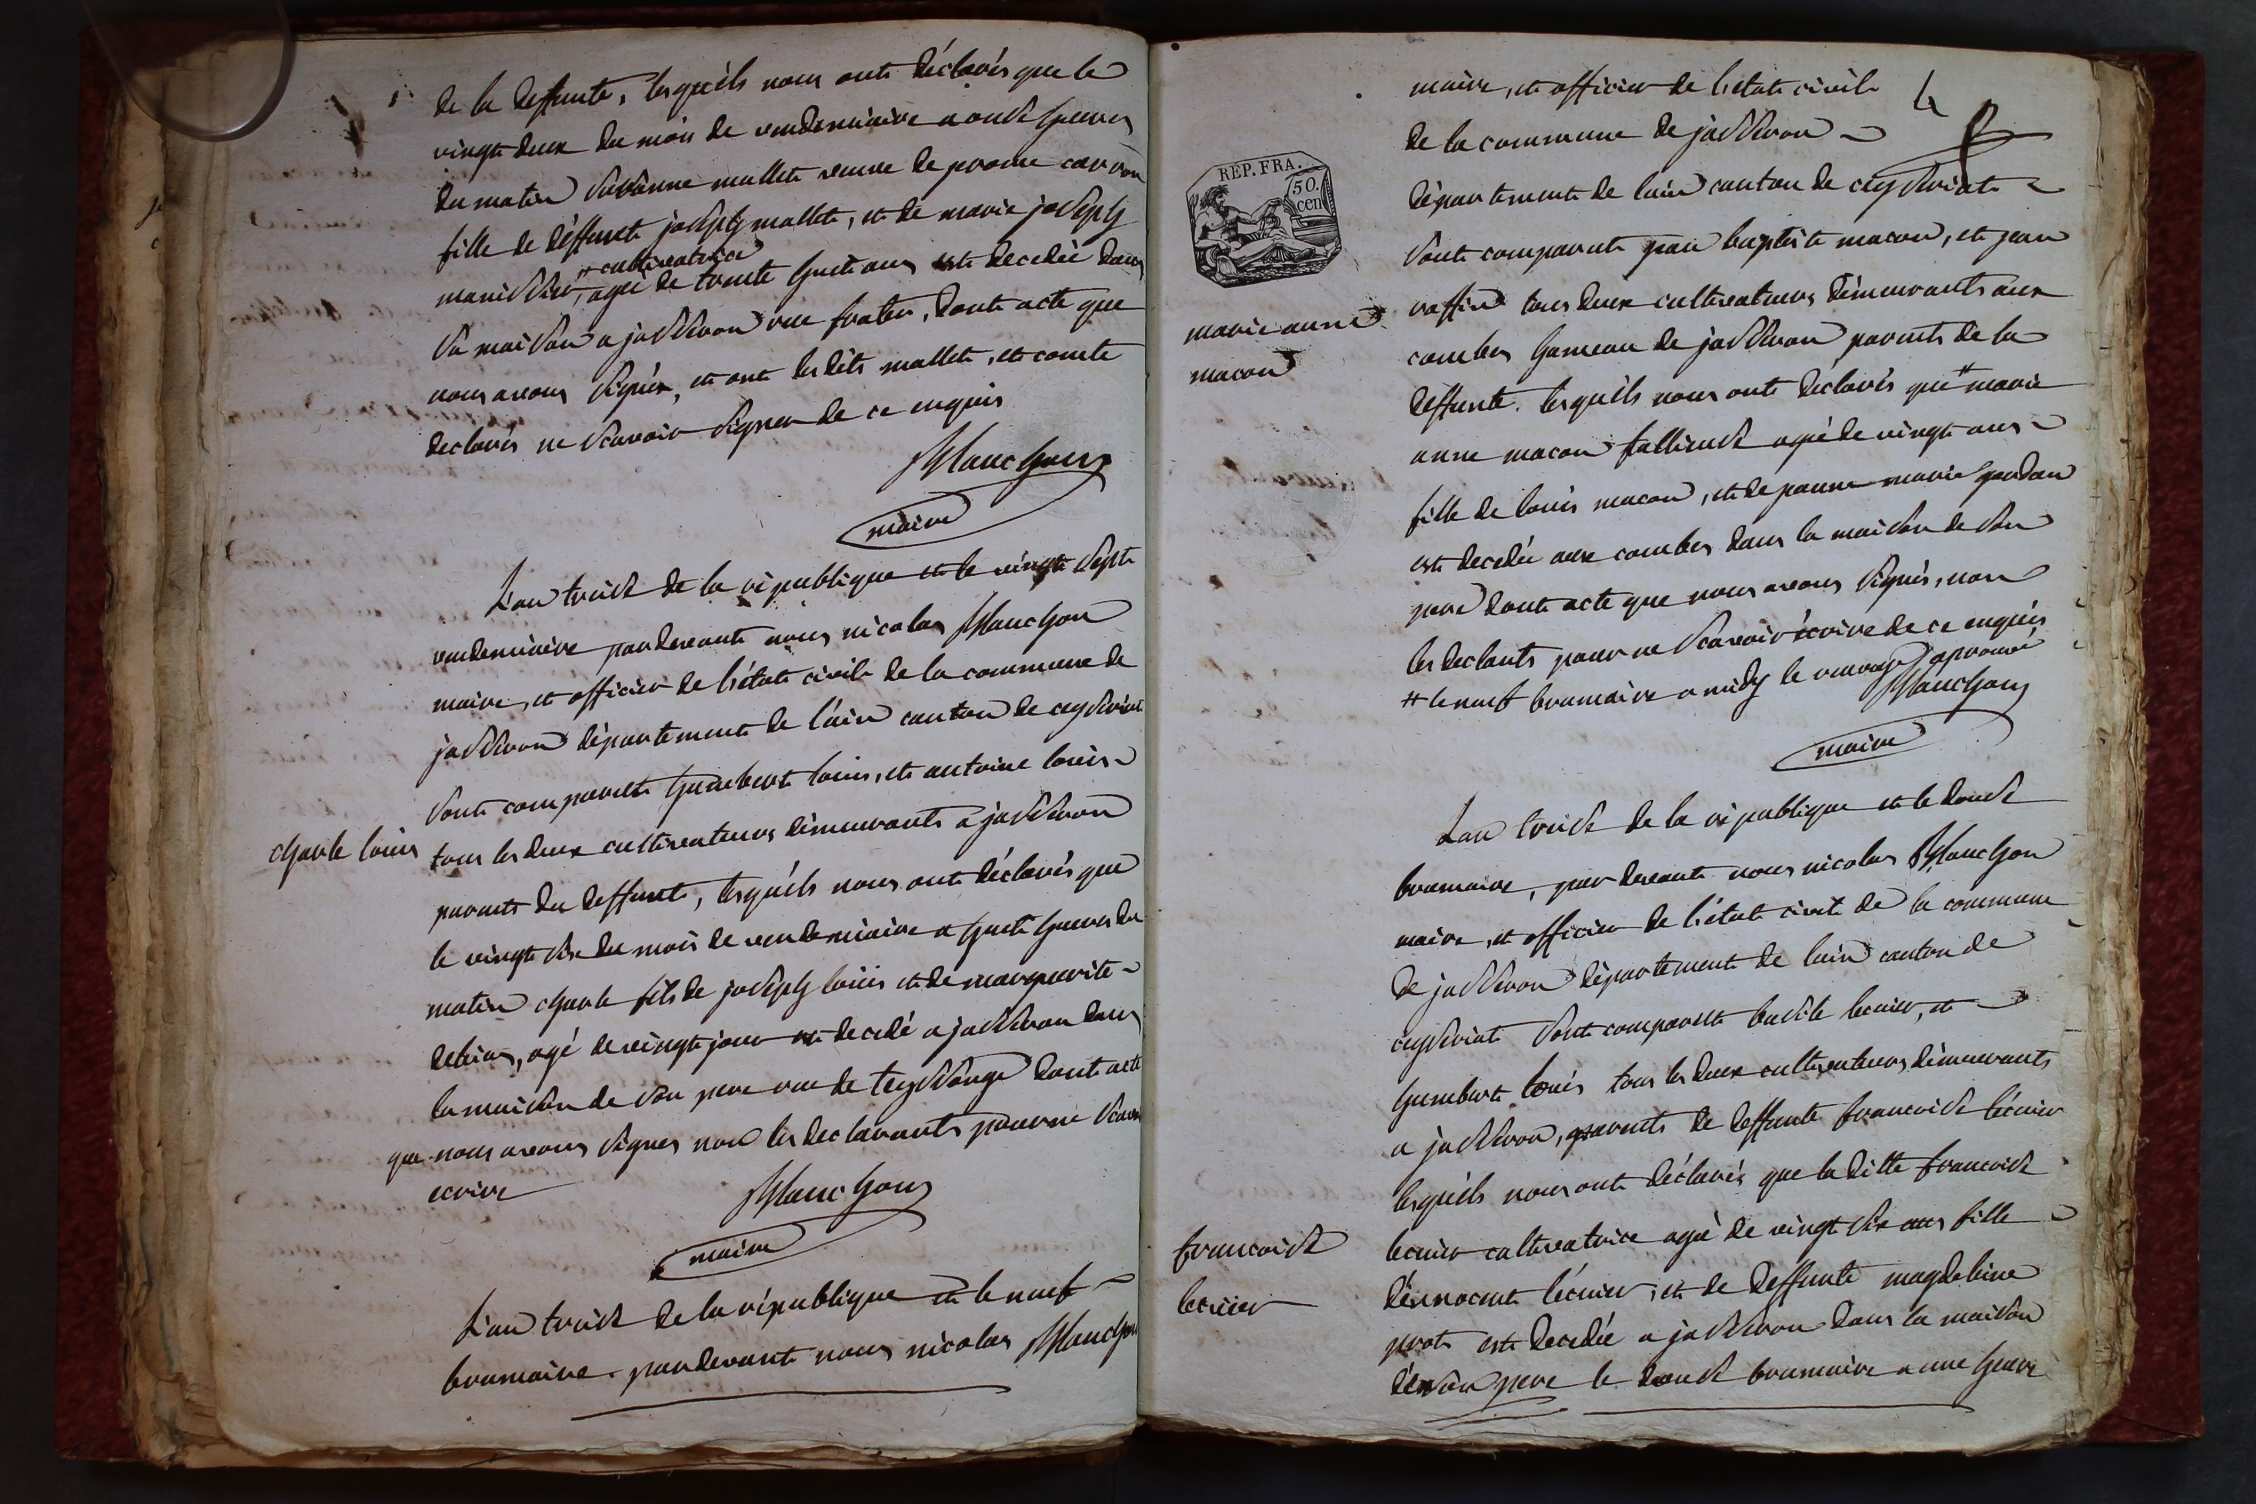 de la deffunte, lesquéls nous ont déclarés que le
vingt deux du mois de vendemiaire a onse heures
du matin susanne mallet veuve de prome carron
fille de déffunt joseph mallet, et de marie joseph
cultivatrice
agée de trente huit ans est decedée dans
sa maison a jasseron rue frater, dont acte que
nous avons signés, et ont les dits mallet, et comte
declarés ne scavoir signer de ce enquis
Blanchon
maire
L'an treise de la république et le vingt sépt
vendemiaire pardevant nous nicolas Blanchon
maire, et officier de l'état civil de la commune de
jasseron département de l'ain canton de ceyseriat
sont comparut humbert louis, et antoine louis
charle louis
tous les deux cultivateurs démeurants a jasseron
parents du deffunt, lesquéls nous ont déclarés que
le vingt six du mois de vendemiaire a huit heures du
matin charle fils de joseph louis et de marguerite
debias, agé de vingt jour est decedé a jasseron dans
la maison de son pere rue de teyssonge dont acte
que nous avons signes non les declarants pour ne scavoir
ecrire
Blanchon
maire
L'an treise de la république et le neuf
brumaire pardevant nous nicolas Blanchon
4
maire, et officier de l'état civil
de la commune de jasseron
REP. FRA.
50.
cen
département de lain canton de ceyseriat
sont comparut jean baptiste macon, et jean
raffin tous deux cultivateurs démeurants aux
marie anne
macon
combes hameau de jasseron parents de la
deffunte. lesquéls nous ont déclarés que # marie
anne macon fallieuse agé de vingt ans
fille de louis macon, et de jeanne marie gordan
est decedée aux combes dans la maison de son
pere dont acte que nous avons signés, non
les declants pour ne scavoir écrire de ce enquis
# le neuf brumaire a midy le renvoye aprouvé
Blanchon
maire
Lan treise de la république et le douse
brumaire, par devant nous nicolas Blanchon
maire, et officier de l'état civil de la commune
de jasseron département de lain canton de
ceyseriat sont comparut basile lecuier, et
humbert louis tous les deux cultivateurs démeurants
a jasseron, parents de deffunte francoise lécuier
lesquéls nous ont déclarés que la ditte francoise
francoise
lecuier
lecuier cultivatrice agé de vingt six ans fille
dénnocent lécuier, et de deffunte magdeleine
prost est decedée a jasseron dans la maison
de son pere le douse brumaire a une heure